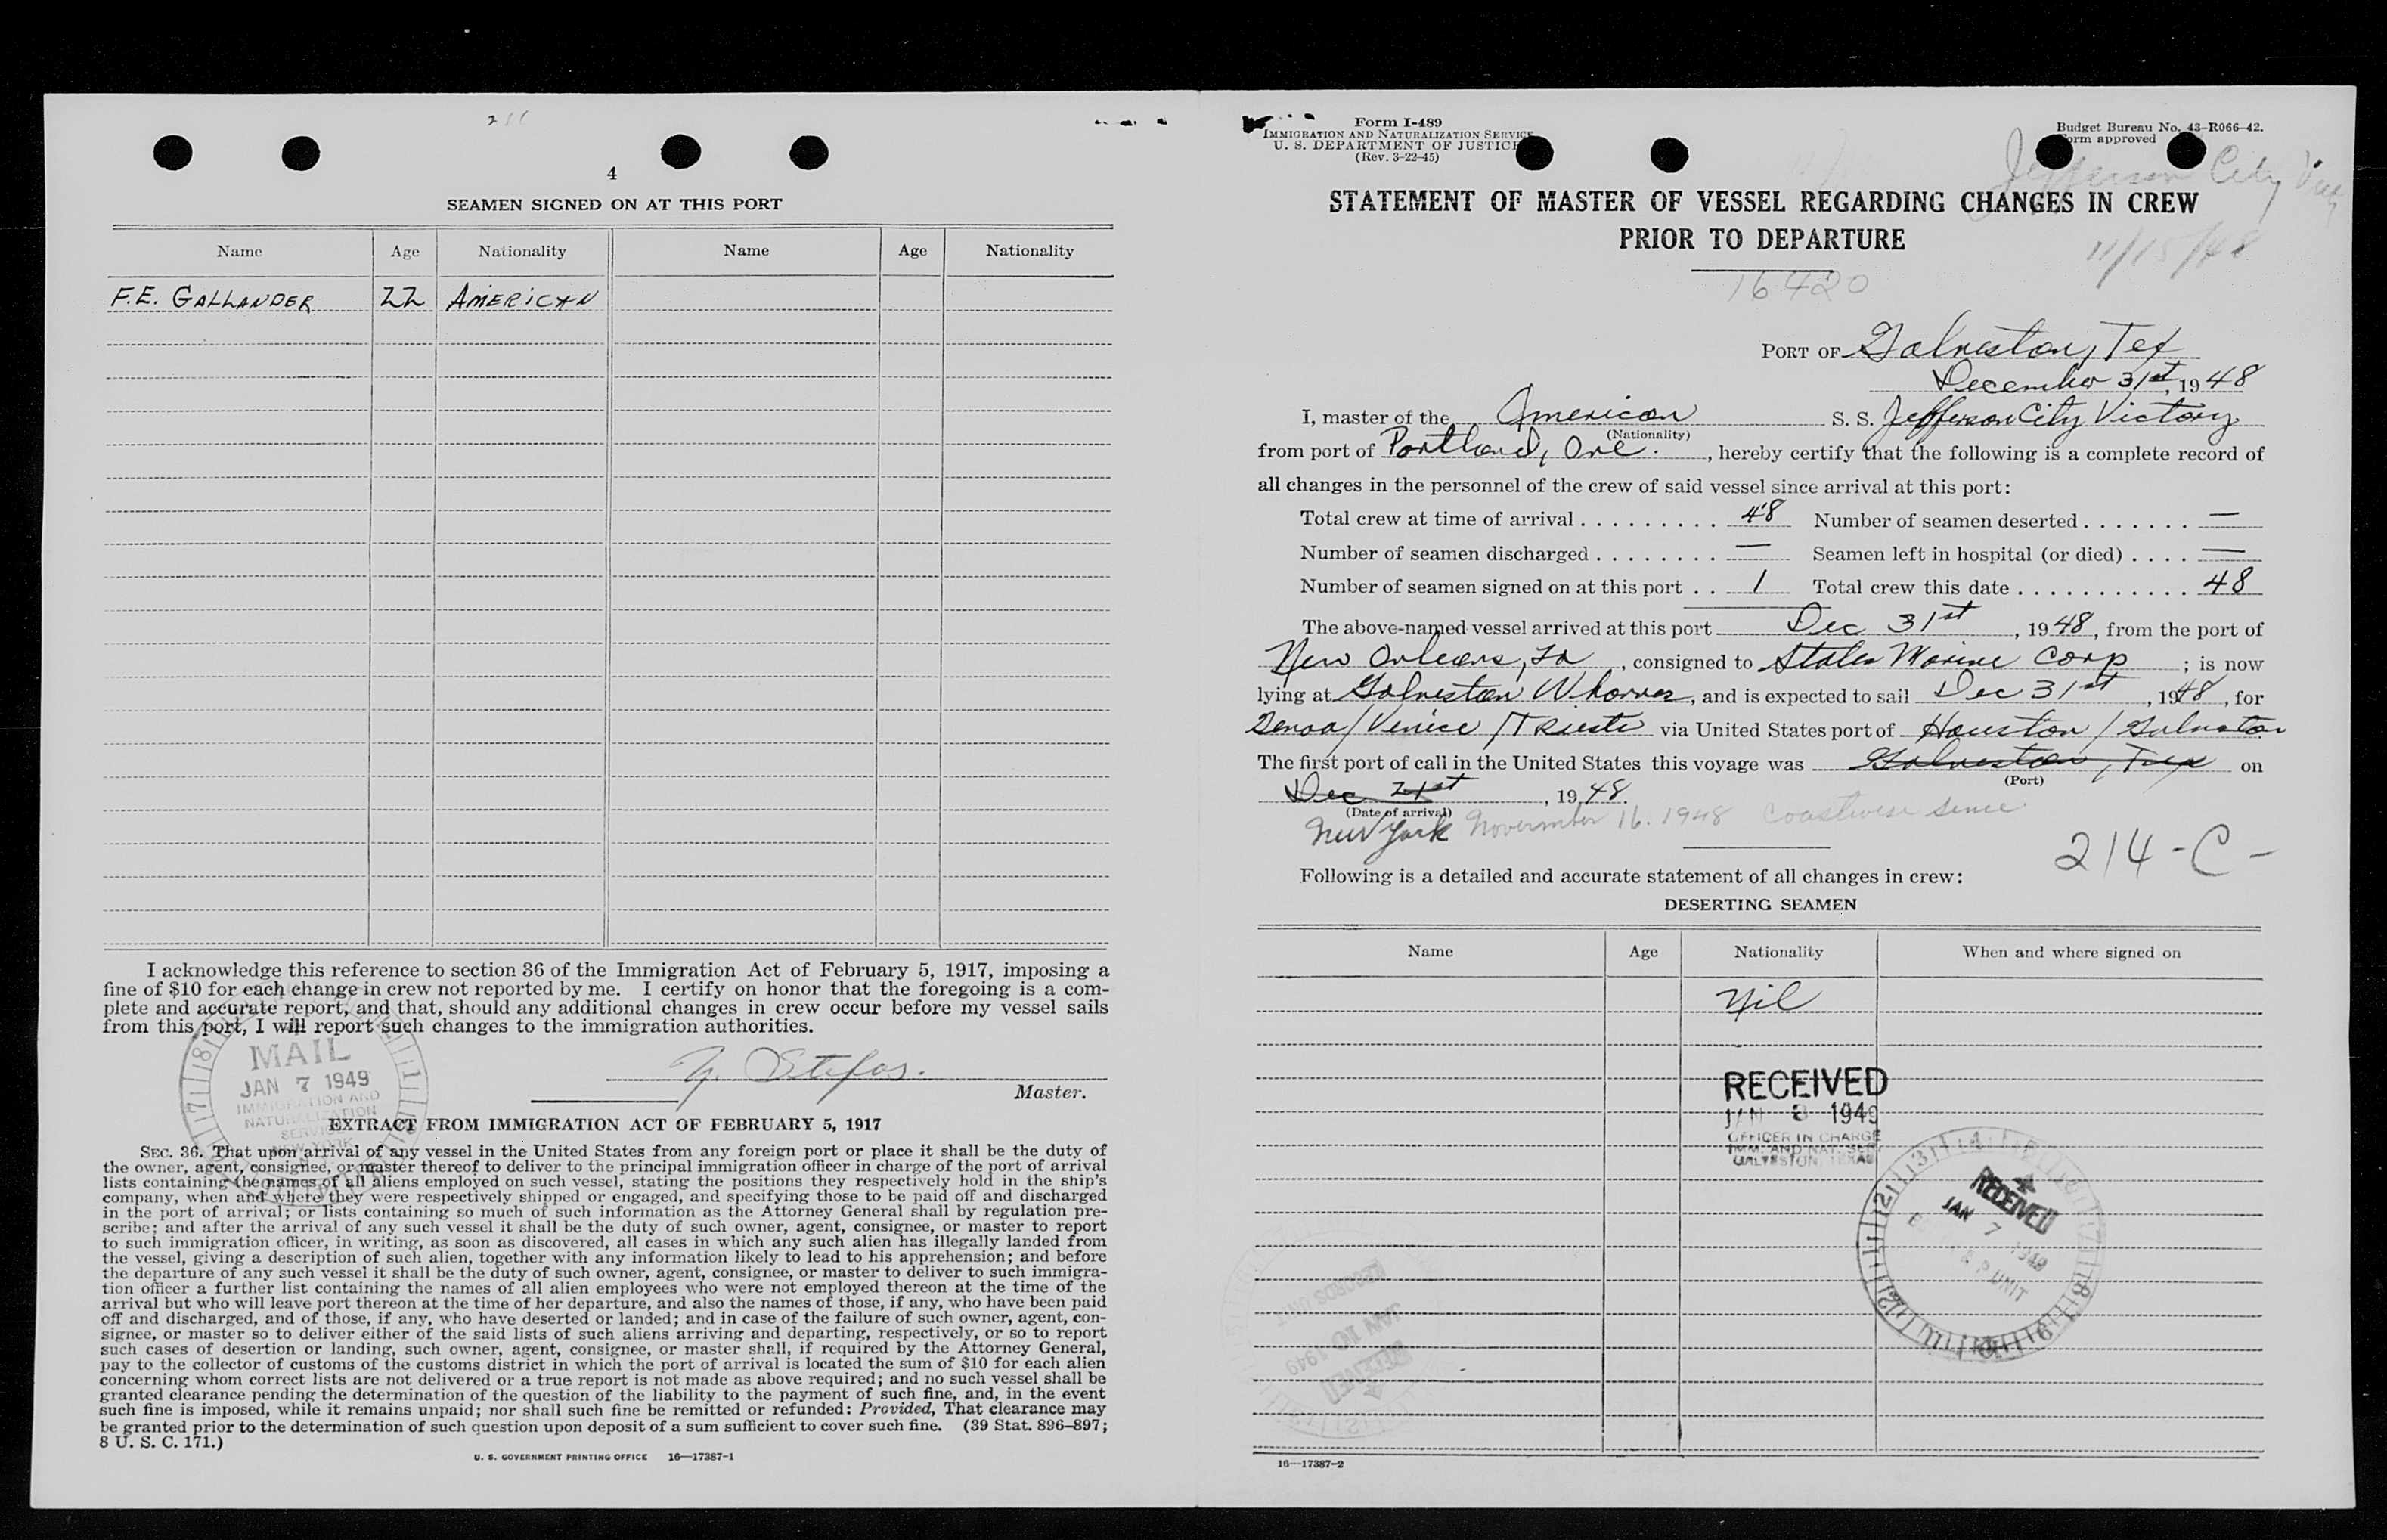 4
SEAMEN SIGNED ON AT THIS PORT
Name Age Nationality Name Age Nationality
F.E. GALLANDER 22 AMERICAN
I acknowledge this reference to section 36 of the Immigration Act of February 5, 1917, imposing a
fine of $10 for each change in crew not reported by me. I certify on honor that the foregoing is a com-
plete and accurate report, and that, should any additional changes in crew occur before my vessel sails
from this port, I will report such changes to the immigration authorities.
MAIL
JAN 7 1949
IMMIGRATION AND
NATURALIZATION
SERVICE
NEW YORK
Stefos.
Master.
EXTRACT FROM IMMIGRATION ACT OF FEBRUARY 5, 1917
SEC. 36. That upon arrival of any vessel in the United States from any foreign port or place it shall be the duty of
the owner, agent, consignee, or master thereof to deliver to the principal immigration officer in charge of the port of arrival
lists containing the names of all aliens employed on such vessel, stating the positions they respectively hold in the ship's
company, when and where they were respectively shipped or engaged, and specifying those to be paid off and discharged
in the port of arrival; or lists containing so much of such information as the Attorney General shall by regulation pre-
scribe; and after the arrival of any such vessel it shall be the duty of such owner, agent, consignee, or master to report
to such immigration officer, in writing, as soon as discovered, all cases in which any such alien has illegally landed from
the vessel, giving a description of such alien, together with any information likely to lead to his apprehension; and before
the departure of any such vessel it shall be the duty of such owner, agent, consignee, or master to deliver to such immigra-
tion officer a further list containing the names of all alien employees who were not employed thereon at the time of the
arrival but who will leave port thereon at the time of her departure, and also the names of those, if any, who have been paid
off and discharged, and of those, if any, who have deserted or landed; and in case of the failure of such owner, agent, con-
signee, or master so to deliver either of the said lists of such aliens arriving and departing, respectively, or so to report
such cases of desertion or landing, such owner, agent, consignee, or master shall, if required by the Attorney General,
pay to the collector of customs of the customs district in which the port of arrival is located the sum of $10 for each alien
concerning whom correct lists are not delivered or a true report is not made as above required; and no such vessel shall be
granted clearance pending the determination of the question of the liability to the payment of such fine, and, in the event
such fine is imposed, while it remains unpaid; nor shall such fine be remitted or refunded: Provided, That clearance may
be granted prior to the determination of such question upon deposit of a sum sufficient to cover such fine. (39 Stat. 896–897;
8 U. S. C. 171.)
U. S. GOVERNMENT PRINTING OFFICE 16—17387-1
Form I-489
IMMIGRATION AND NATURALIZATION SERVICE
U. S. DEPARTMENT OF JUSTICE
(Rev. 3-22-45)
Budget Bureau No. 43-R066-42.
Form approved
Jefferson City Vic
STATEMENT OF MASTER OF VESSEL REGARDING CHANGES IN CREW
PRIOR TO DEPARTURE
11/15/48
16420
PORT OF Galveston, Tex
December 31st, 1948
I, master of the American S. S. Jefferson City Victory
(Nationality)
from port of Portland, Ore., hereby certify that the following is a complete record of
all changes in the personnel of the crew of said vessel since arrival at this port:
Total crew at time of arrival . . . . . . . . . 48 Number of seamen deserted . . . . . . . —
Number of seamen discharged . . . . . . . . — Seamen left in hospital (or died) . . . . —
Number of seamen signed on at this port . . 1 Total crew this date . . . . . . . . . . . 48
The above-named vessel arrived at this port Dec 31st, 1948, from the port of
New Orleans, La, consigned to States Marine Corp; is now
lying at Galveston Wharves, and is expected to sail Dec 31st, 1948, for
Genoa/Venice/Trieste via United States port of Houston / Galveston
The first port of call in the United States this voyage was Galveston, Tex on
(Port)
Dec 21st, 1948.
(Date of arrival)
New York November 16. 1948 Coastwise since
214-C-
Following is a detailed and accurate statement of all changes in crew:
DESERTING SEAMEN
Name Age Nationality When and where signed on
Nil
RECEIVED
JAN 3 1949
OFFICER IN CHARGE
IMM. AND NAT. SERV
GALVESTON, TEXAS
RECEIVED
JAN 7 1949
UNIT
RECORDS UNIT
JAN 10 1949
RECEIVED
16—17387-2